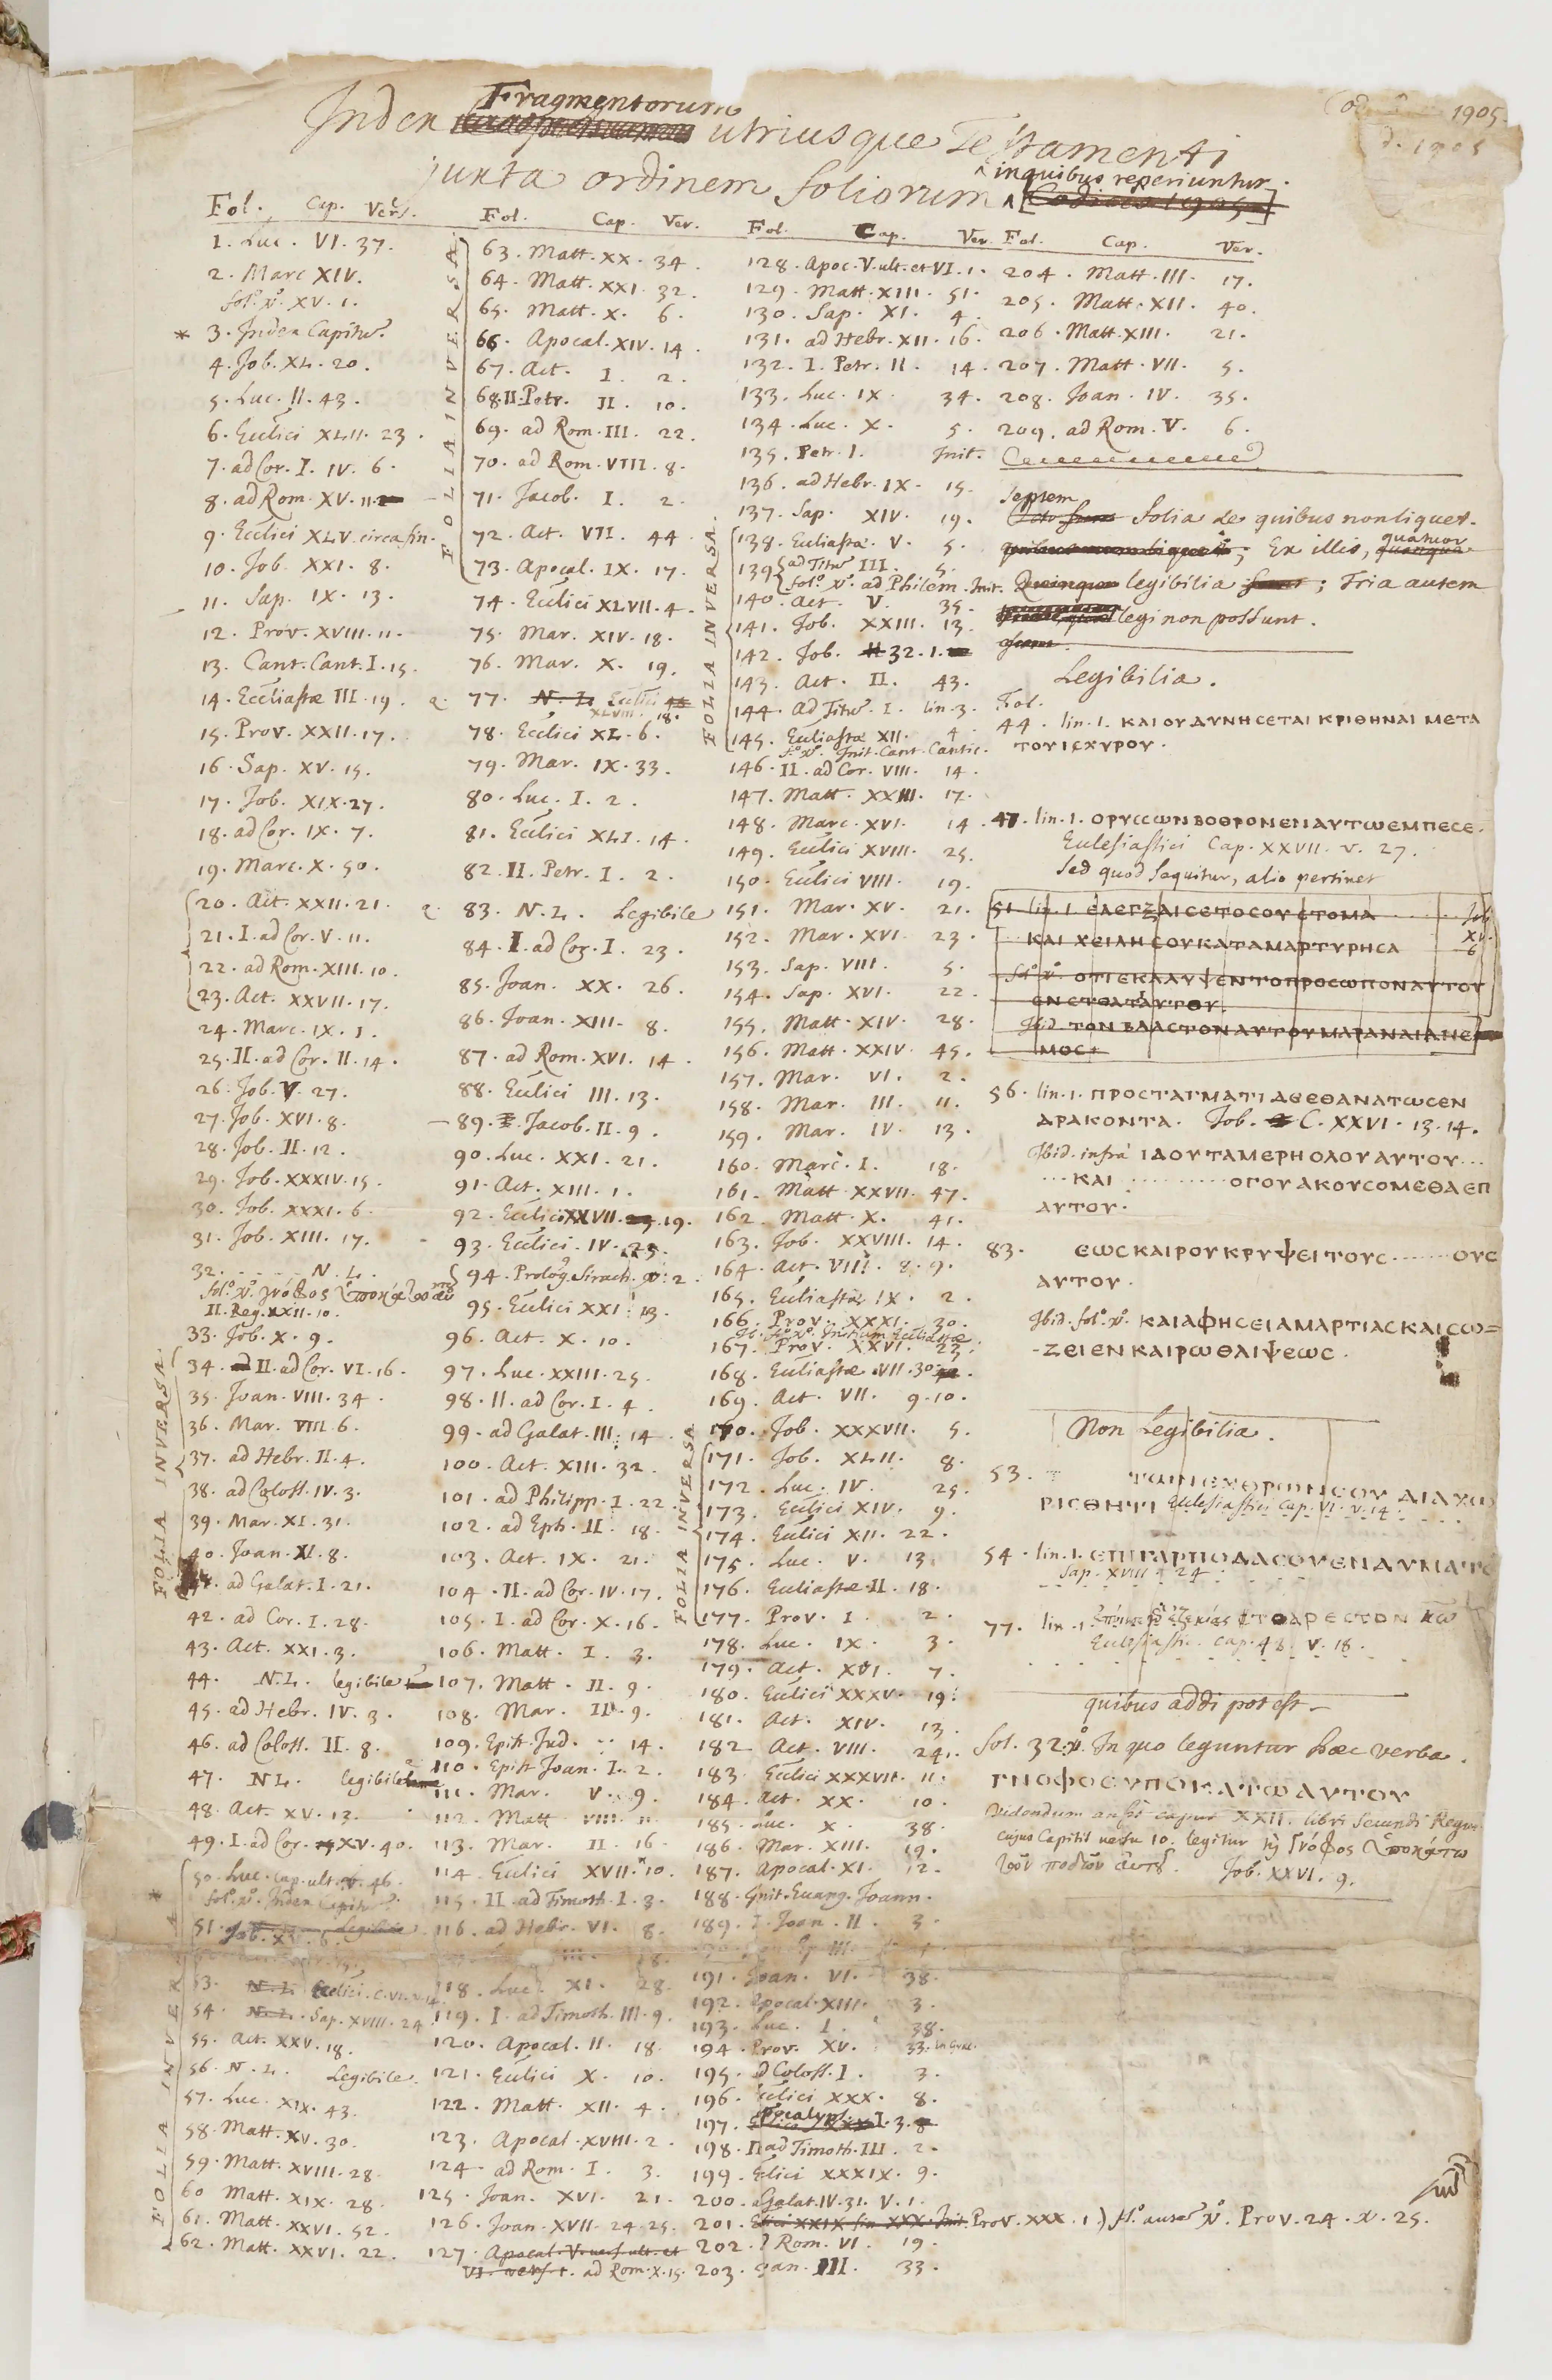 Cod. 1905.
d. 1905
Index Fragmentorum utriusque Testamenti
juxta ordinem foliorum in quibus reperiuntur.
Fol. Cap. Vers.
1. Luc. VI. 37.
2. Marc XIV.
fol. vo. XV. 1.
* 3. Index Capitū.
4. Job. XL. 20.
5. Luc. II. 43.
6. Ecclici XLII. 23.
7. ad Cor. I. IV. 6.
8. ad Rom. XV. 11.
9. Ecclici XLV. circa fin.
10. Job. XXI. 8.
11. Sap. IX. 13.
12. Prov. XVIII. 11.
13. Cant. Cant. I. 15.
14. Ecclīastæ III. 19.
15. Prov. XXII. 17.
16. Sap. XV. 15.
17. Job. XIX. 27.
18. ad Cor. IX. 7.
19. Marc. X. 50.
20. Act. XXII. 21.
21. I. ad Cor. V. 11.
22. ad Rom. XIII. 10.
23. Act. XXVII. 17.
24. Marc. IX. 1.
25. II. ad Cor. II. 14.
26. Job. V. 27.
27. Job. XVI. 8.
28. Job. II. 12.
29. Job. XXXIV. 15.
30. Job. XXXI. 6.
31. Job. XIII. 17.
32. N. L.
fol. vo. γνόφος ὑποκάτω
II. Reg. XXII. 10.
33. Job. X. 9.
FOLIA INVERSA.
34. II. ad Cor. VI. 16.
35. Joan. VIII. 34.
36. Mar. VIII. 6.
37. ad Hebr. II. 4.
38. ad Coloss. IV. 3.
39. Mar. XI. 31.
40. Joan. XI. 8.
41. ad Galat. I. 21.
42. ad Cor. I. 28.
43. Act. XXI. 3.
44. N. L. legibile
45. ad Hebr. IV. 3.
46. ad Coloss. II. 8.
47. N L. legibile
48. Act. XV. 12.
49. I. ad Cor. XV. 40.
FOLIA INVERSA
50. Luc. cap. ult. v. 46.
* fol. vo. Index Capitū
51. Job. XV. 6.
53. N. L. Ecclici. C. VI. v. 14.
54. N. L. Sap. XVIII. 24
55. Act. XXV. 18.
56. N. L. Legibile.
57. Luc. XIX. 43.
58. Matt. XV. 30.
59. Matt. XVIII. 28.
60 Matt. XIX. 28.
61. Matt. XXVI. 52.
62. Matt. XXVI. 22.
Fol. Cap. Ver.
FOLIA INVERSA
63. Matt. XX. 34.
64. Matt. XXI. 32.
65. Matt. X. 6.
66. Apocal. XIV. 14.
67. Act. I. 2.
68. II. Petr. II. 10.
69. ad Rom. III. 22.
70. ad Rom. VIII. 8.
71. Jacob. I. 2.
72. Act. VII. 44.
73. Apocal. IX. 17.
74. Ecclici XLVII. 4.
75. Mar. XIV. 18.
76. Mar. X. 19.
77. N. L. Ecclici
XLVIII. 18.
78. Ecclici XL. 6.
79. Mar. IX. 33.
80. Luc. I. 2.
81. Ecclici XLI. 14.
82. II. Petr. I. 2.
83. N. L. Legibile
84. I. ad Cor. I. 23.
85. Joan. XX. 26.
86. Joan. XIII. 8.
87. ad Rom. XVI. 14.
88. Ecclici III. 13.
89. Jacob. II. 9.
90. Luc. XXI. 21.
91. Act. XIII. 1.
92. Ecclici XXVII. 19.
93. Ecclici. IV. 23.
94. Prolog. Sirach. v. 2.
95. Ecclici XXI. 13.
96. Act. X. 10.
97. Luc. XXIII. 25.
98. II. ad Cor. I. 4.
99. ad Galat. III. 14.
100. Act. XIII. 32.
101. ad Philipp. I. 22.
102. ad Eph. II. 18.
103. Act. IX. 21.
104. II. ad Cor. IV. 17.
105. I. ad Cor. X. 16.
106. Matt. I. 3.
107. Matt. II. 9.
108. Mar. II. 9.
109. Epist. Jud. 14.
110. Epist Joan. I. 2.
111. Mar. V. 9.
112. Matt VIII. 11.
113. Mar. II. 16.
114. Ecclici XVII. 10.
115. II. ad Timoth. I. 3.
116. ad Hebr. VI. 8.
118. Luc. XI. 28.
119. I. ad Timoth. III. 9.
120. Apocal. II. 18.
121. Ecclici X. 10.
122. Matt. XII. 4.
123. Apocal. XVIII. 2.
124. ad Rom. I. 3.
125. Joan. XVI. 21.
126. Joan. XVII. 24. 25.
127. Apocal. V. vers. ult. et
VI. vers. 1. ad Rom. X. 15.
Fol. Cap. Ver.
128. Apoc. V. ult. et VI. 1.
129. Matt. XIII. 51.
130. Sap. XI. 4.
131. ad Hebr. XII. 16.
132. I. Petr. II. 14.
133. Luc. IX. 34.
134. Luc. X. 5.
135. Petr. I. Init.
136. ad Hebr. IX. 15.
137. Sap. XIV. 19.
FOLIA INVERSA.
138. Eccliastæ. V. 5.
139. ad Titū III. 5.
fol. vo. ad Philem. Init.
140. Act. V. 35.
141. Job. XXIII. 13.
142. Job. 32. 1.
143. Act. II. 43.
144. ad Titū. I. lin. 3.
145. Eccliastæ XII. 4.
fo. vo. Init. Cant. Cantic.
146. II. ad Cor. VIII. 14.
147. Matt. XXIII. 17.
148. Marc. XVI. 14.
149. Ecclici XVIII. 25.
150. Ecclici VIII. 19.
151. Mar. XV. 21.
152. Mar. XVI. 23.
153. Sap. VIII. 5.
154. Sap. XVI. 22.
155. Matt. XIV. 28.
156. Matt. XXIV. 45.
157. Mar. VI. 2.
158. Mar. III. 11.
159. Mar. IV. 13.
160. Marc. I. 18.
161. Matt. XXVII. 47.
162. Matt. X. 41.
163. Job. XXVIII. 14.
164. Act. VIII. 8. 9.
165. Eccliastæ IX. 2.
166. Prov. XXXI. 30.
Ib. fo. vo. Initium Eccliastæ.
167. Prov. XXVI. 23.
168. Eccliastæ. VII. 30.
169. Act. VII. 9. 10.
170. Job. XXXVII. 5.
FOLIA INVERSA
171. Job. XLII. 8.
172. Luc. IV. 25.
173. Ecclici XIV. 9.
174. Ecclici XII. 22.
175. Luc. V. 13.
176. Eccliastæ II. 18.
177. Prov. I. 2.
178. Luc. IX. 3.
179. Act. XVI. 7.
180. Ecclici XXXV. 19.
181. Act. XIV. 13.
182. Act. VIII. 24.
183. Ecclici XXXVII. 11.
184. Act. XX. 10.
185. Luc. X. 38.
186. Mar. XIII. 19.
187. Apocal. XI. 12.
188. Init. Euang. Joann.
189. I. Joan. II. 3.
191. Joan. VI. 38.
192. Apocal. XIII. 3.
193. Luc. I. 38.
194. Prov. XV. 33.
195. ad Coloss. I. 3.
196. Ecclici XXX. 8.
197. Apocalyps. I. 3.
198. II ad Timoth. III. 2.
199. Ecclici XXXIX. 9.
200. Galat. IV. 31. V. 1.
201. Prov. XXX. 1.) fo. autē vo. Prov. 24. v. 25.
202. Rom. VI. 19.
203. Joan. III. 33.
Fol. Cap. Ver.
204. Matt. III. 17.
205. Matt. XII. 40.
206. Matt. XIII. 21.
207. Matt. VII. 5.
208. Joan. IV. 35.
209. ad Rom. V. 6.
Septem folia de quibus non liquet.
Ex illis, quatuor
legibilia; Tria autem
legi non possunt.
Legibilia.
Fol.
44. lin. 1. ΚΑΙ ΟΥ ΔΥΝΗСΕΤΑΙ ΚΡΙΘΗΝΑΙ ΜΕΤΑ
ΤΟΥ ΙСΧΥΡΟΥ.
47. lin. 1. ΟΡΥССΩΝ ΒΟΘΡΟΝ ΕΝ ΑΥΤΩ ΕΜΠΕСΕ.
Ecclesiastici Cap. XXVII. v. 27.
Sed quod sequitur, alio pertinet
51. lin. 1. ΕΛΕΓΞΑΙ СΕ ΤΟ СΟΥ СΤΟΜΑ Job
ΚΑΙ ΧΕΙΛΗ СΟΥ ΚΑΤΑΜΑΡΤΥΡΗСΑ XV. 6
fo. vo. ΟΤΙ ΕΚΑΛΥΨΕΝ ΤΟ ΠΡΟСΩΠΟΝ ΑΥΤΟΥ
ΕΝ СΤΕΑΤΙ ΑΥΤΟΥ.
Ibid. ΤΟΝ ΒΛΑСΤΟΝ ΑΥΤΟΥ ΜΑΡΑΝΑΙ ΑΝΕ
ΜΟС.
56. lin. 1. ΠΡΟСΤΑΓΜΑΤΙ ΔΕ ΕΘΑΝΑΤΩСΕΝ
ΔΡΑΚΟΝΤΑ. Job. C. XXVI. 13. 14.
Ibid. infrà ΙΔΟΥ ΤΑ ΜΕΡΗ ΟΔΟΥ ΑΥΤΟΥ...
...ΚΑΙ ......... ΟΓΟΥ ΑΚΟΥСΟΜΕΘΑ ΕΠ
ΑΥΤΟΥ.
83. ΕΩС ΚΑΙΡΟΥ ΚΡΥΨΕΙ ΤΟΥС ....... ΟΥС
ΑΥΤΟΥ.
Ibid. fol. vo. ΚΑΙ ΑΦΗСΕΙ ΑΜΑΡΤΙΑС ΚΑΙ СΩ=
-ΖΕΙ ΕΝ ΚΑΙΡΩ ΘΛΙΨΕΩС.
Non Legibilia.
53. ΤΩΝ ΕΧΘΡΩΝ СΟΥ ΔΙΑΧΩ
ΡΙСΘΗΤΙ Ecclesiastici Cap. VI. v. 14.
54. lin. 1. ΕΠΙ ΓΑΡ ΠΟΔΑСΟΥ ΕΝΔΥΜΑΤΟ
Sap. XVIII. 24
77. lin. 1. ἐποίησε ἐζεκίας ΤΟ ΑΡΕСΤΟΝ ΚΩ
Ecclesiasti. Cap. 48. v. 18.
quibus addi potest
fol. 32. v. In quo leguntur hæc verba.
ΓΝΟΦΟС ΥΠΟΚΑΤΩ ΑΥΤΟΥ
Videndum an sit caput XXII. libri Secundi Regum
cujus Capitis versu 10. legitur ἦν γνόφος ὑποκάτω
τῶν ποδῶν αὐτοῦ. Job. XXVI. 9.